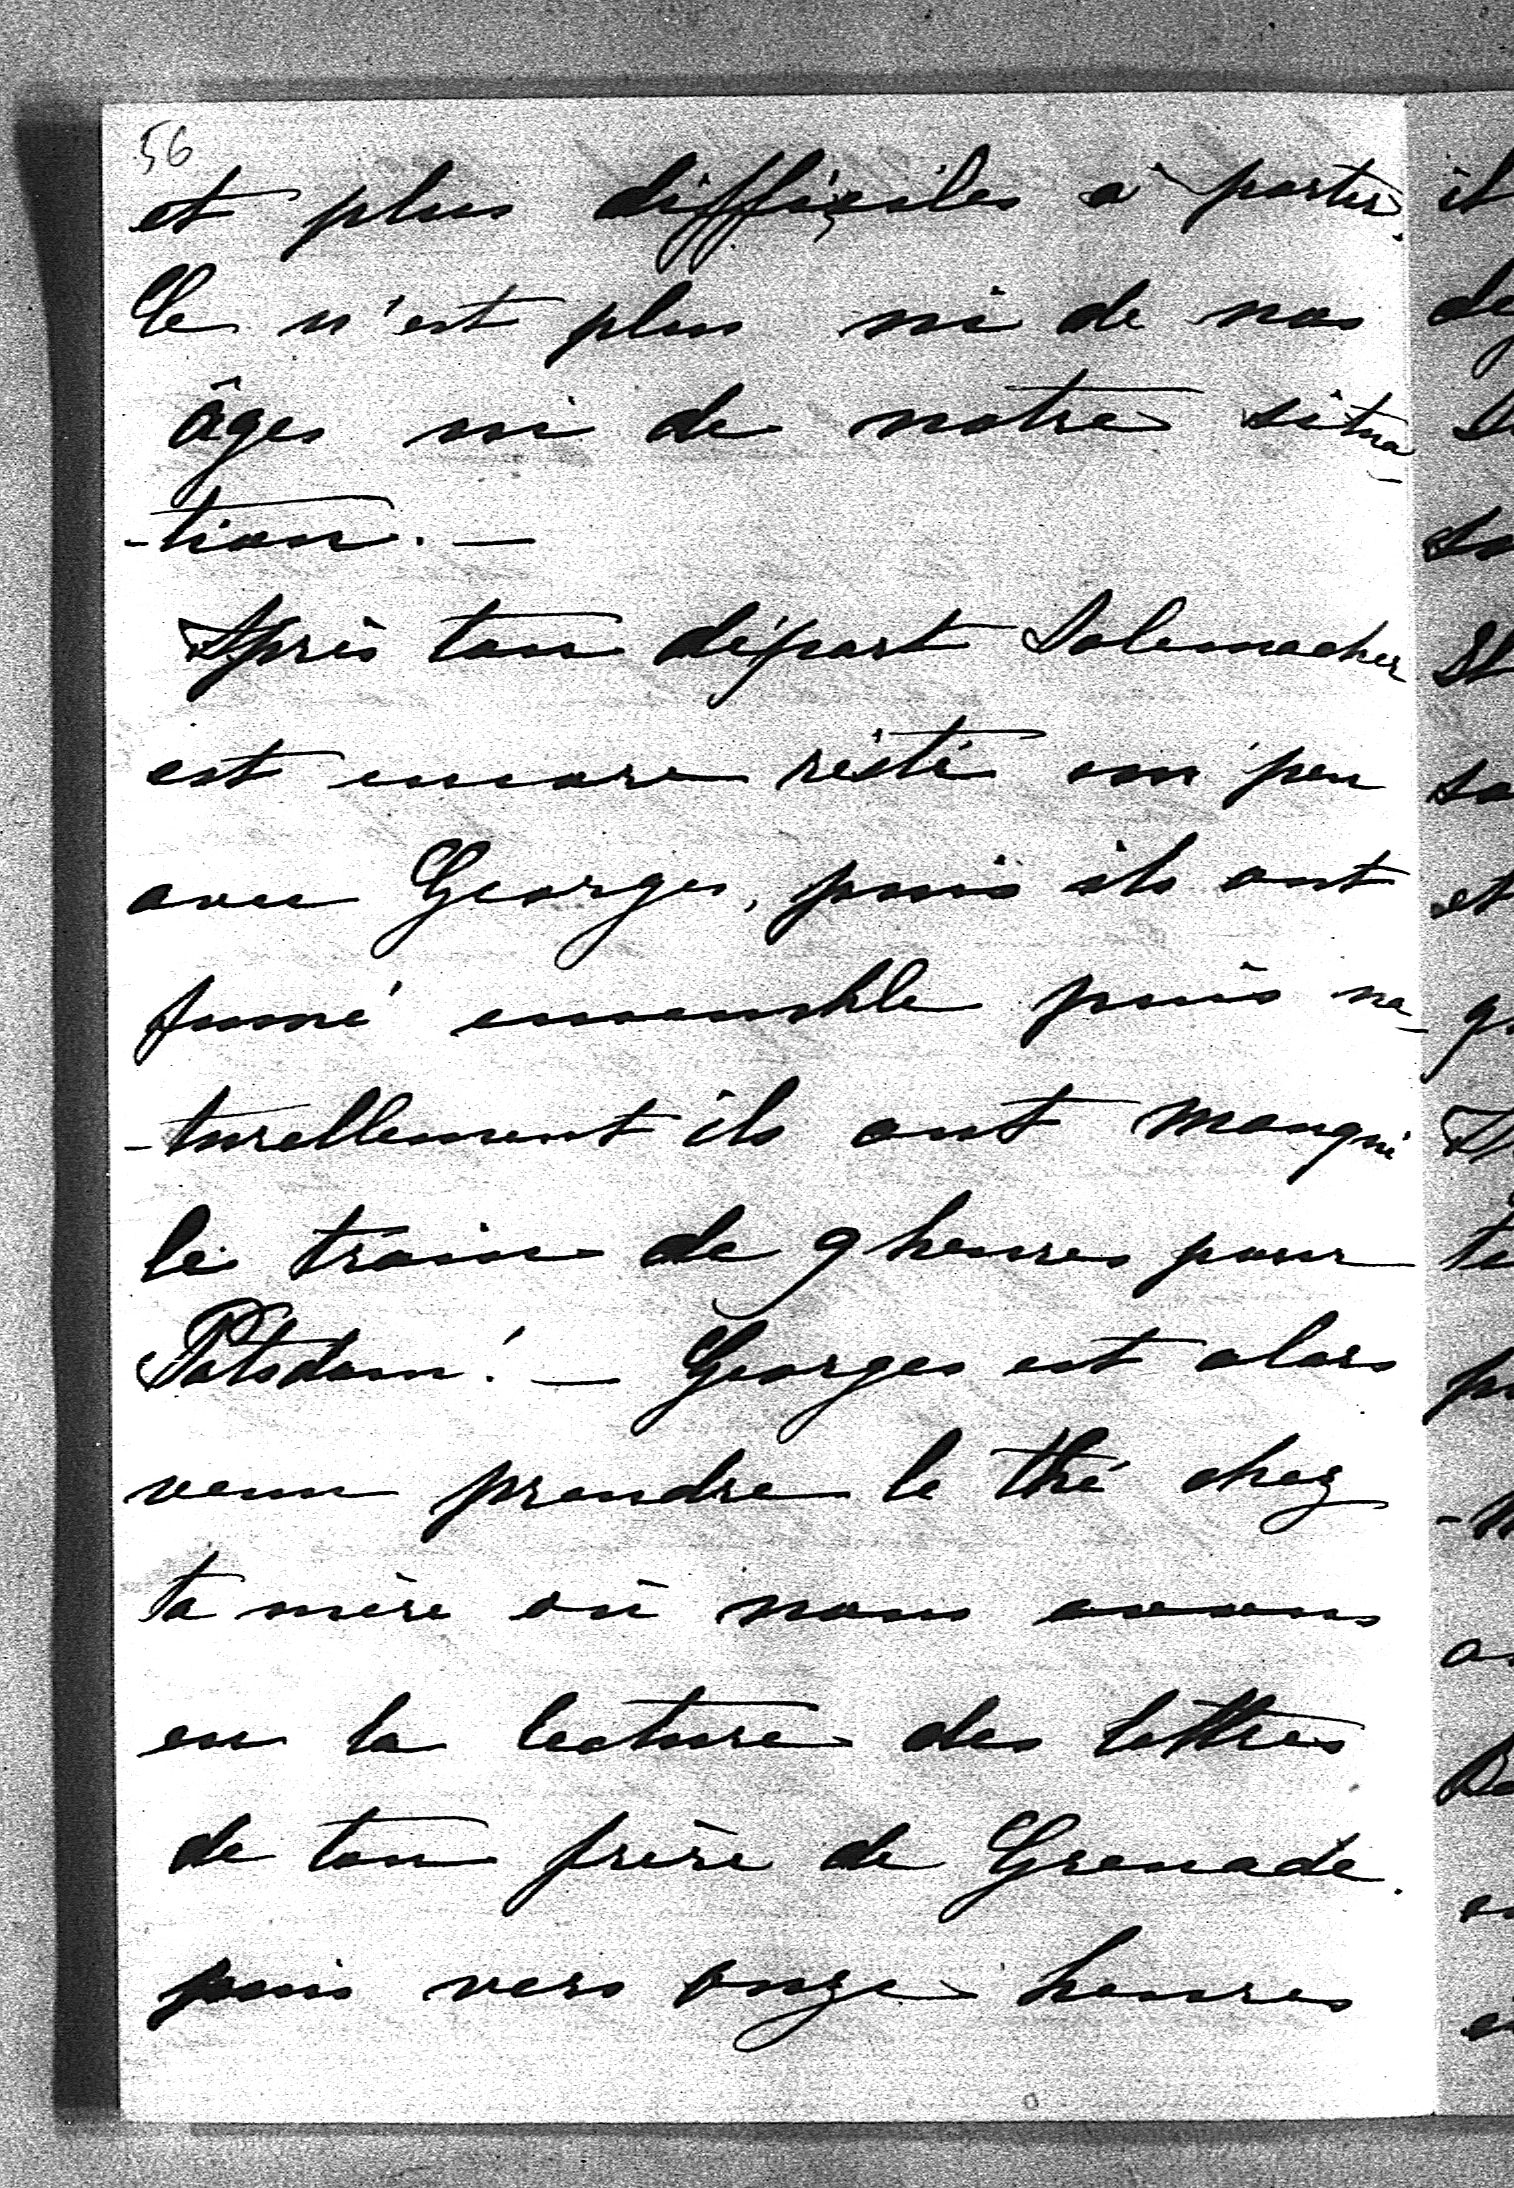 56
et plus difficiles à porter.
Ce n'est plus ni de nos
âges ni de notre situa-
-tion. —
Après ton départ Solemacher
est encore resté un peu
avec Georges, puis ils ont
fumé ensemble puis na-
-turellement ils ont manqué
le train de 9 heures pour
Potsdam! — Georges est alors
venu prendre le thé chez
ta mère où nous avons
eu la lecture des lettres
de ton frère de Grenade.
puis vers onze heures